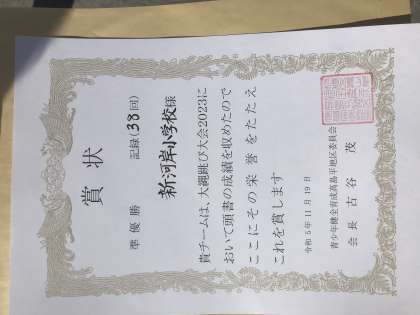 賞状
準優勝 記録(38回)
新河岸小学校様
貴チームは、大縄跳び大会2023に
おいて頭書の成績を収めたので
ここにその栄誉をたたえ
これを賞します
令和5年11月19日
青少年健全育成高島平地区委員会
会長 古谷 茂